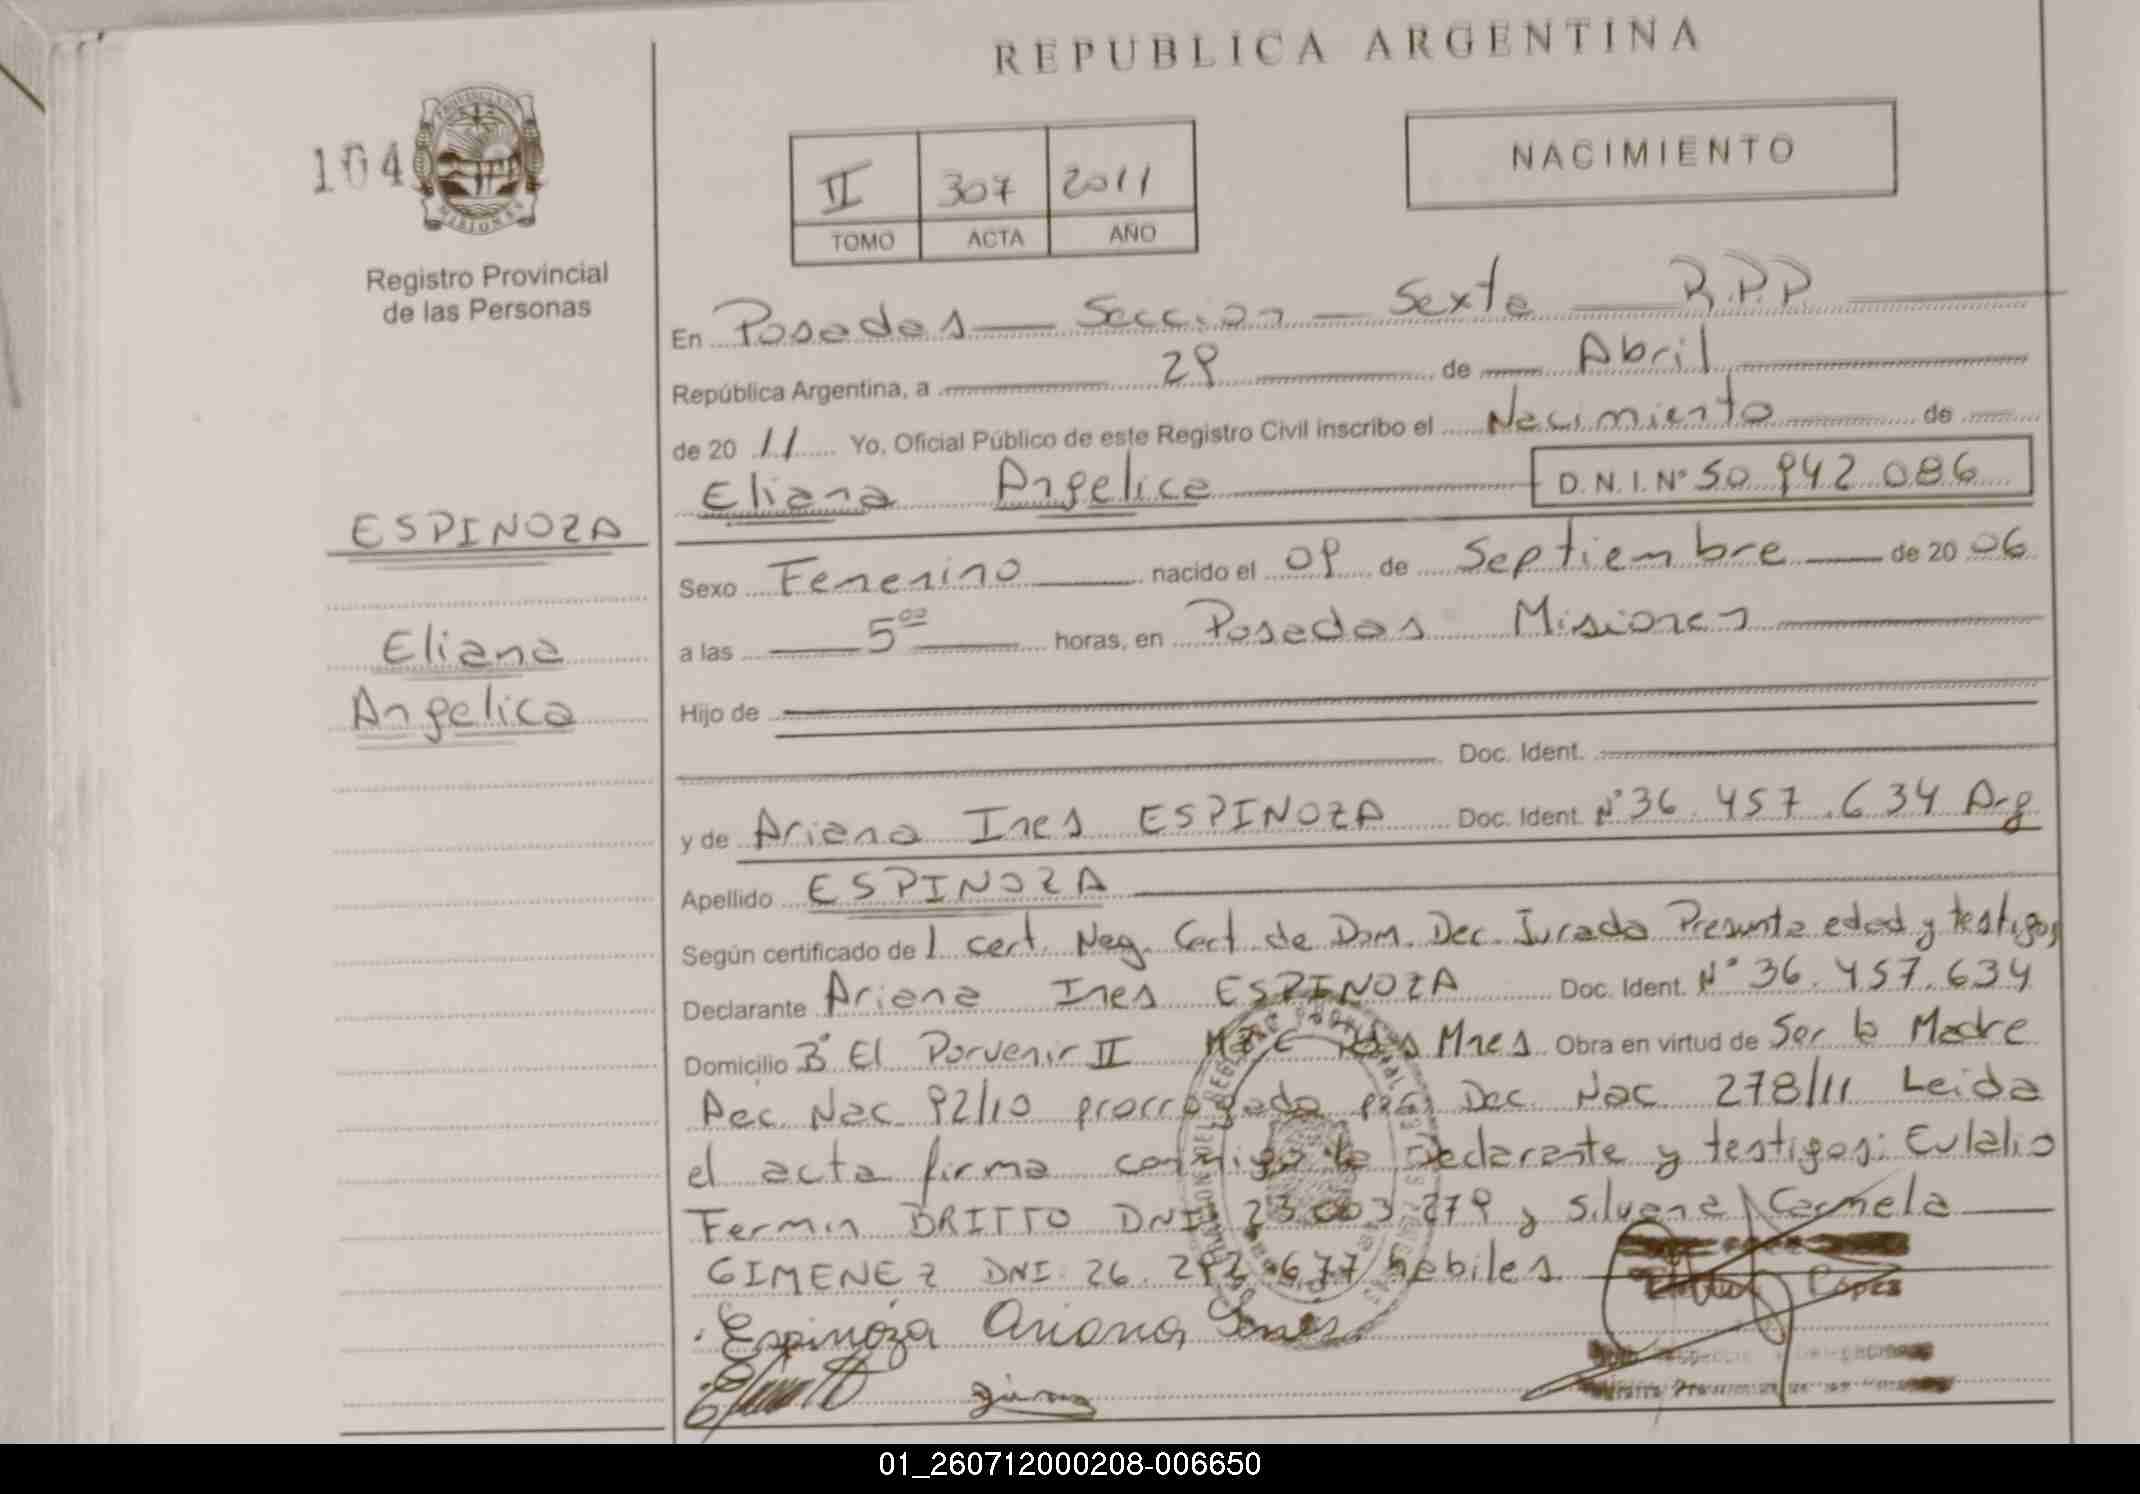 REPUBLICA ARGENTINA
104
PROVINCIA DE
MISIONES
Registro Provincial
de las Personas
II 307 2011
TOMO ACTA AÑO
NACIMIENTO
En Posadas Seccion Sexta R.P.P
República Argentina, a 29 de Abril
de 2011 Yo, Oficial Público de este Registro Civil inscribo el Nacimiento de
Eliana Angelica D.N.I.Nº 50.942.086
ESPINOZA
Eliana
Angelica
Sexo Femenino nacido el 09 de Septiembre de 2006
a las 5 00 horas, en Posadas Misiones
Hijo de
Doc. Ident.
y de Ariana Ines ESPINOZA Doc. Ident. Nº 36.457.634 Arg
Apellido ESPINOZA
Según certificado de 1 cert. Neg. Cert. de Dom. Dec. Jurada Presunta edad y testigos
Declarante Ariana Ines ESPINOZA Doc. Ident. Nº 36.457.634
Domicilio Bº El Porvenir II Mnes Obra en virtud de Ser la Madre
Dec. Nac. 92/10 prorrogado por Dec. Nac. 278/11 Leida
el acta firma conmigo la Declarante y testigos: Eulalio
Fermin BRITTO DNI 23.003.279 y Silvana Carmela
GIMENEZ DNI 26. habiles
Espinoza Ariana Ines
Lopez
01_260712000208-006650